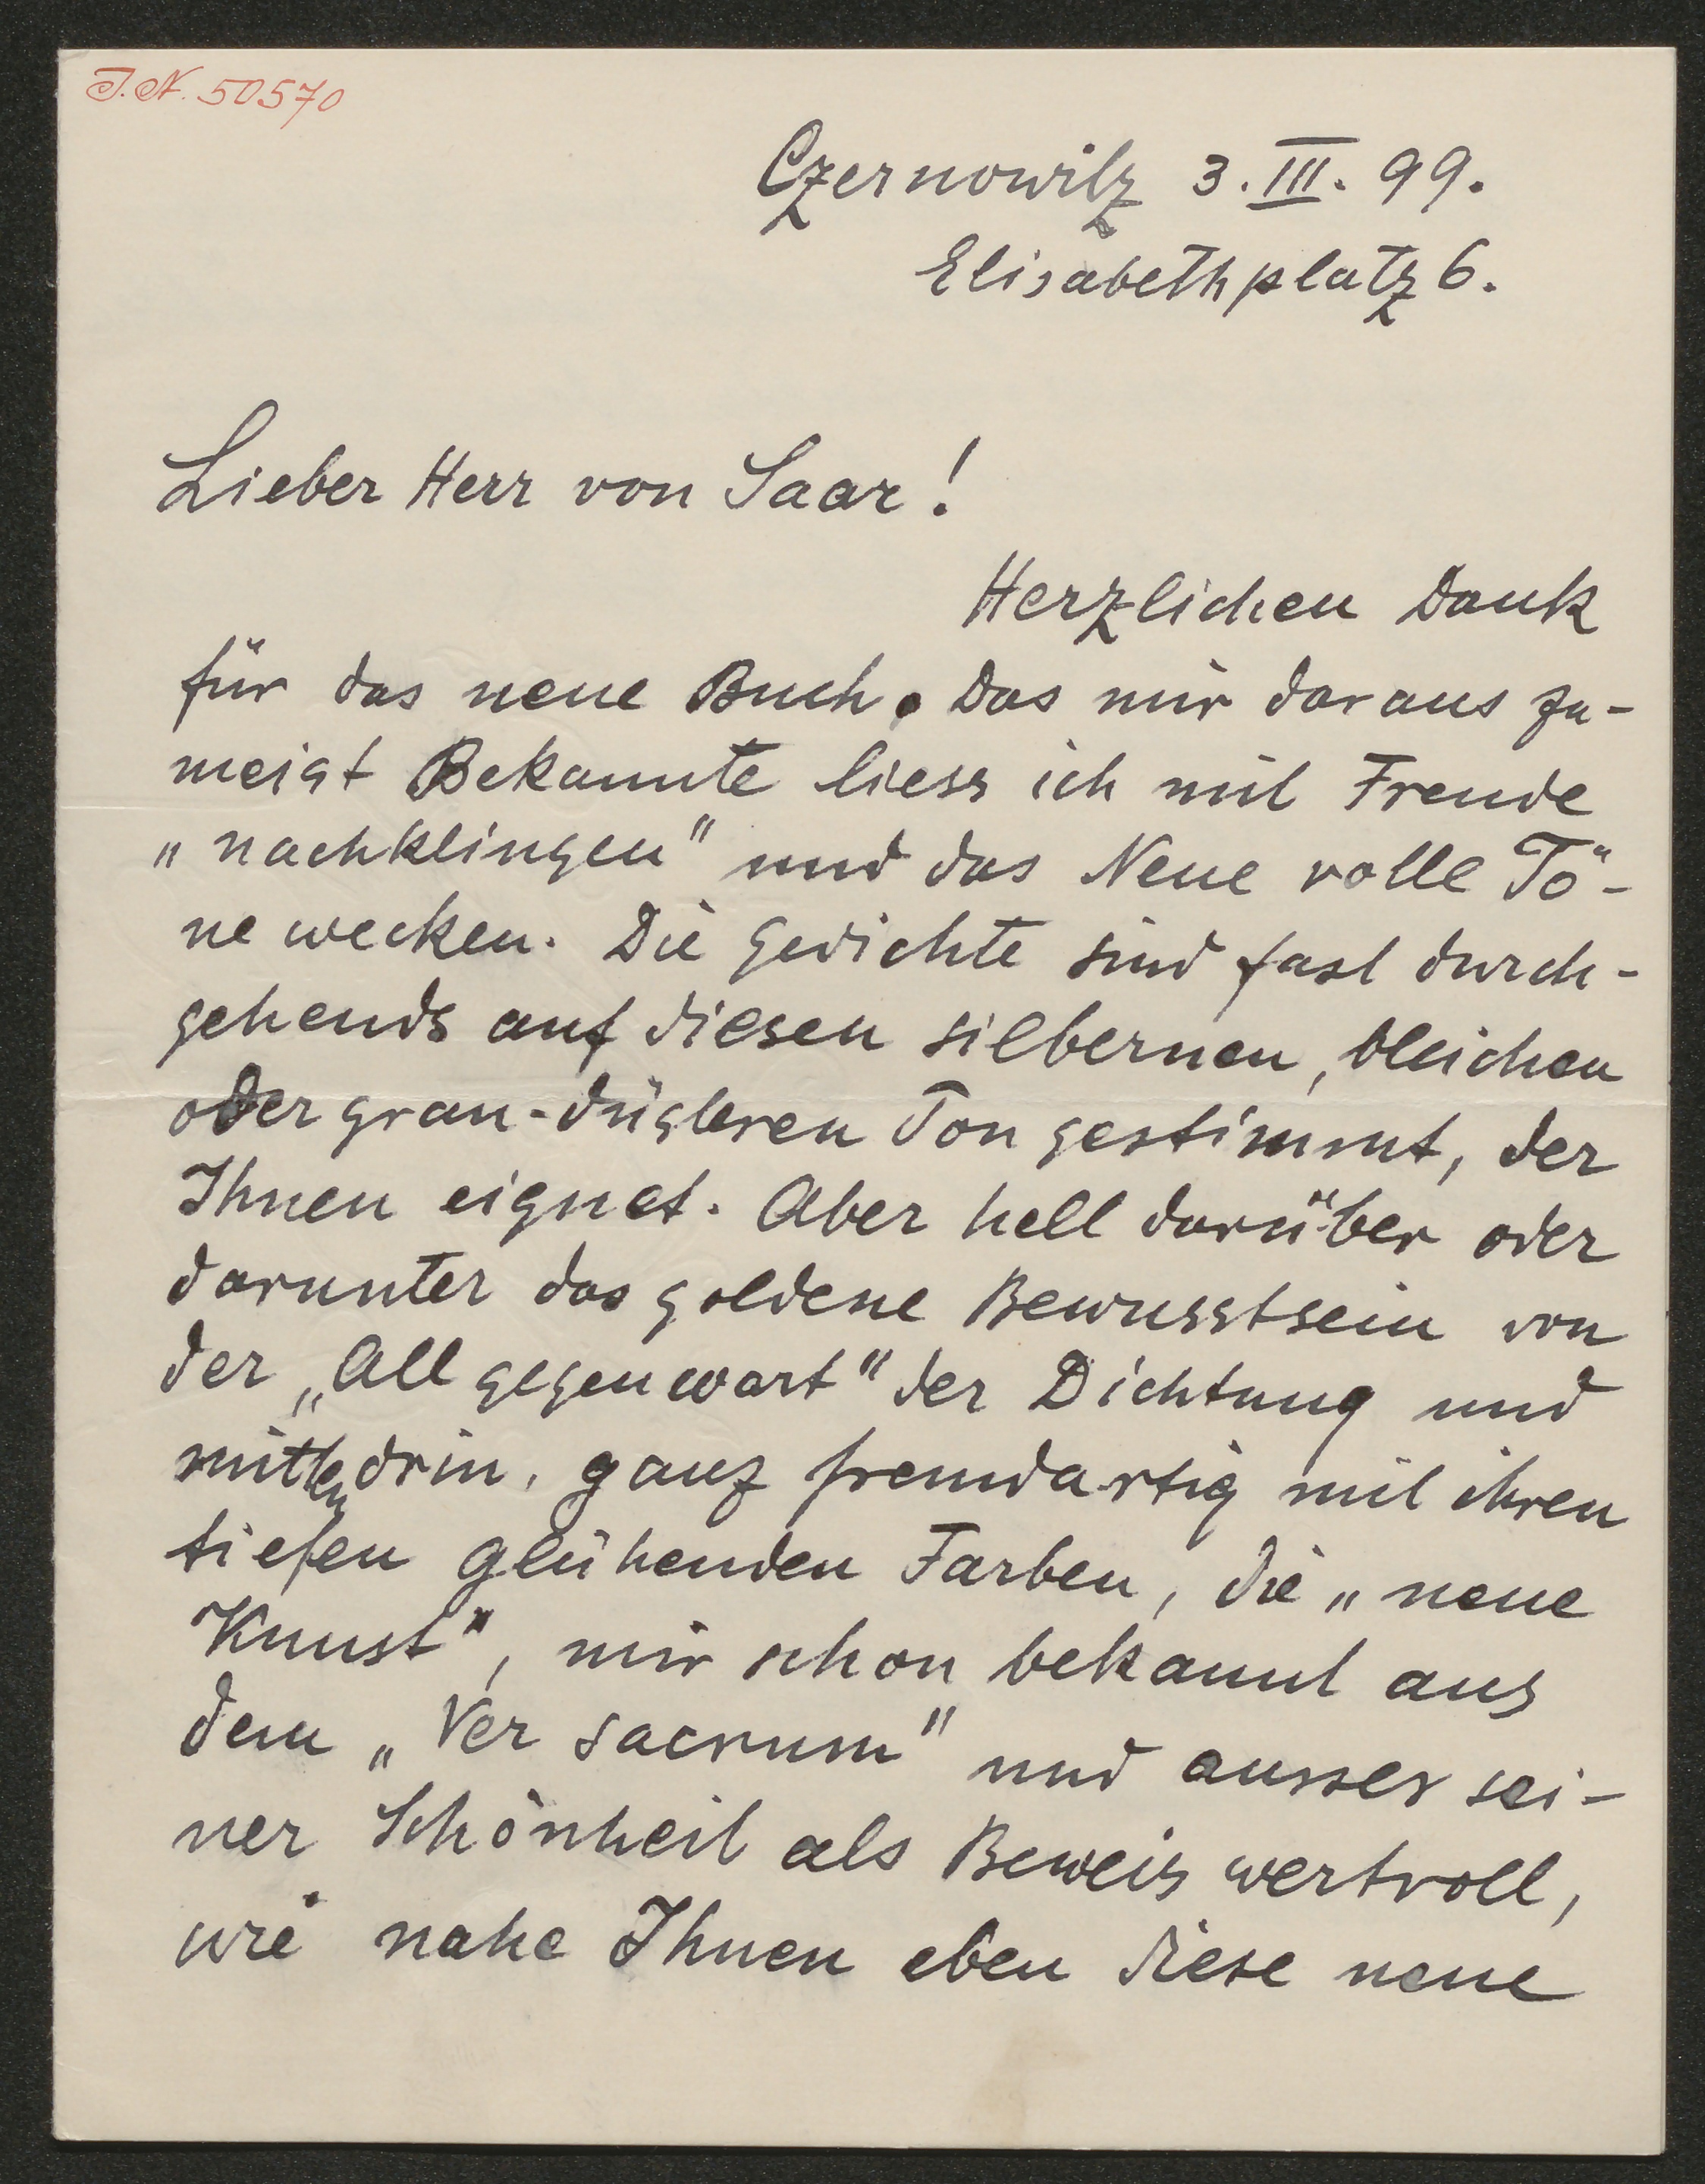 J.N. 50570
Czernowitz 3.III.99.
Elisabethplatz 6.
Lieber Herr von Saar!
Herzlichen Dank
für das neue Buch. Das mir daraus zu-
meist Bekannte liess ich mit Freude
„nachklingen" und das Neue volle Tö-
ne wecken. Die Gedichte sind fast durch-
gehends auf diesen silbernen, bleichen
oder grau-düsteren Ton gestimmt, der
Ihnen eignet. Aber hell darüber oder
darunter das goldene Bewusstsein von
der „Allgegenwart" der Dichtung und
mittendrin, ganz fremdartig mit ihren
tiefen glühenden Farben, die „neue
Kunst", mir schon bekannt aus
dem „Ver sacrum" und ausser sei-
ner Schönheit als Beweis wertvoll,
wie nahe Ihnen eben diese neue